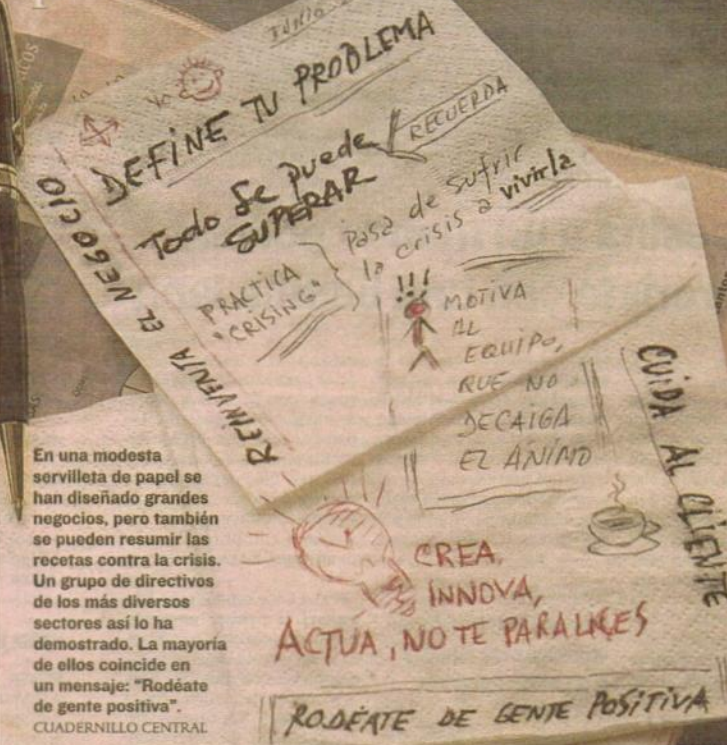 JUNIO
yo
DEFINE TU PROBLEMA
Todo Se puede
SUPERAR
RECUERDA
REINVENTA EL NEGOCIO
PRACTICA
"CRISING"
Pasa de sufrir
la crisis a vivirla
!!!
MOTIVA
AL
EQUIPO,
QUE NO
DECAIGA
EL ÁNIMO
CUIDA AL CLIENTE
CREA,
INNOVA,
ACTUA, NO TE PARALICES
RODÉATE DE GENTE POSITIVA
En una modesta
servilleta de papel se
han diseñado grandes
negocios, pero también
se pueden resumir las
recetas contra la crisis.
Un grupo de directivos
de los más diversos
sectores así lo ha
demostrado. La mayoría
de ellos coincide en
un mensaje: “Rodéate
de gente positiva”.
CUADERNILLO CENTRAL